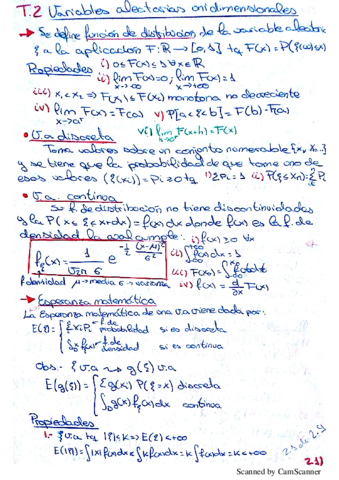 T.2 Variables aleatorias unidimensionales
→ Se define función de distribución de la variable aleatoria
ξ a la aplicacion F: ℝ → [0,1] tq F(x) = P(ξ(ω)≤x)
Propiedades i) 0≤F(x)≤1 ∀x∈ℝ
ii) lim F(x)=0; lim F(x)=1
x→-∞ x→+∞
iii) x₁<x₂ => F(x₁)≤F(x₂) monotona no decreciente
iv) lim F(x)=F(a) v) P[a<ξ≤b] = F(b)-F(a)
x→a⁺
• V.a discreta vi) lim F(x+h)=F(x)
Toma valores sobre un conjunto numerable {x₁, x₂..}
y se tiene que la probabilidad de que tome uno de
esos valores (ξ(x_i))=P_i≥0 tq i) ΣP_i=1 ii) P(ξ≤x_n)=ΣP_i
• V.a. continua
Su f. de distribución no tiene discontinuidades
y la P(x<ξ≤x+dx)=f(x)dx donde f(x) es la f. de
densidad la cual cumple: i) f(x)≥0 ∀x
ii) ∫f(x)dx=1
f_ξ(x) = 1/√2π σ e^{-1/2 (x-μ)²/σ²} iii) F(x)=∫f(t)dt
f densidad μ→media σ→varianza iv) f(x) = d/dx F(x)
→ Esperanza matemática
La Esperanza matemática de una v.a viene dada por:
E(ξ) = { Σx_i P_i f. de probabilidad si es discreta
∫x f(x) f. de densidad si es continua
Obs.- ξ v.a ⇝ g(ξ) v.a
E(g(ξ)) = { Σg(x_i) P(ξ=x_i) discreta
∫g(x) f_ξ(x)dx continua
Propiedades
1.- ξ v.a tq |ξ|≤K => E(ξ)<+∞
E(|ξ|)=∫|x|f(x)dx≤∫Kf(x)dx=K∫f(x)dx=K<+∞
2.1)
Scanned by CamScanner